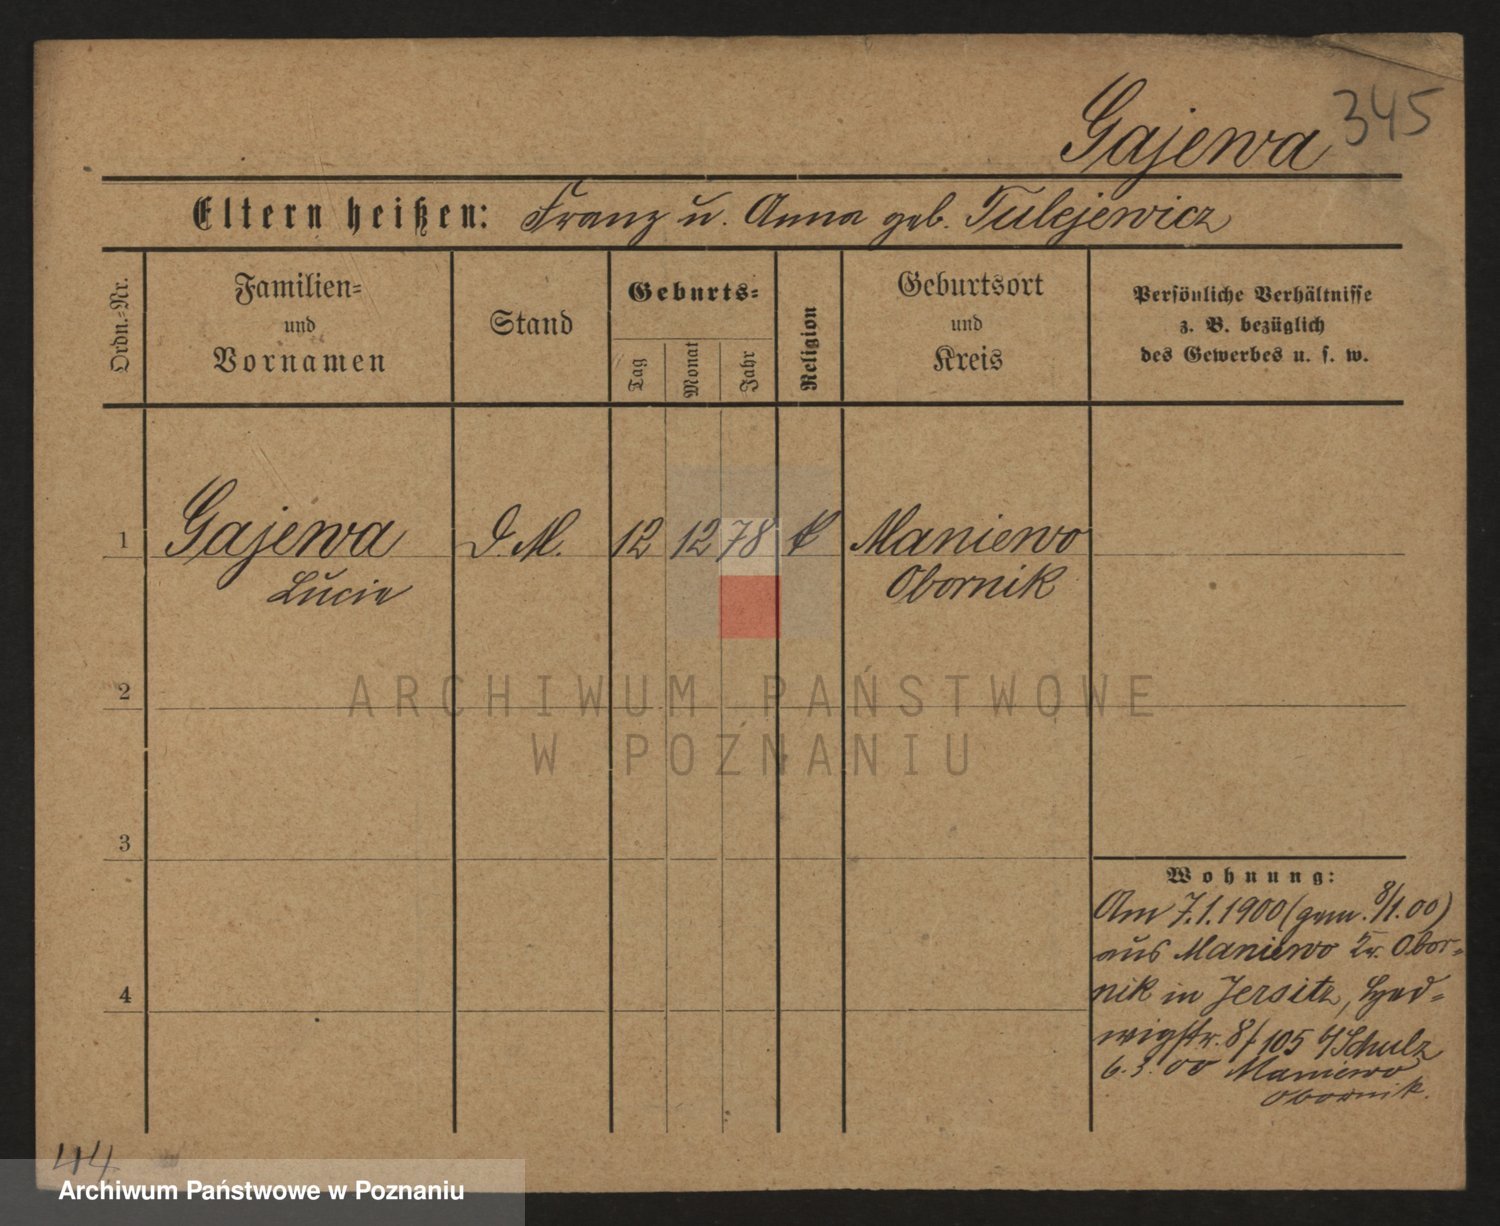 345
Gajewa
Eltern heißen: Franz u. Anna geb. Tulejewicz
Ordn.-Nr.
Familien-
und
Vornamen
Stand
Geburts-
Tag
Monat
Jahr
Religion
Geburtsort
und
Kreis
Persönliche Verhältnisse
z. B. bezüglich
des Gewerbes u. s. w.
1 Gajewa D. M. 12 12 78 k Maniewo
Lucie Obornik
2
ARCHIWUM PAŃSTWOWE
W POZNANIU
3
Wohnung:
Am 7.1.1900 (gem. 8/1.00)
aus Maniewo Kr. Obor-
4
nik in Jersitz, Hed-
wigstr. 8/105 b/Schulz
6.3.00 Maniewo
Obornik.
44
Archiwum Państwowe w Poznaniu